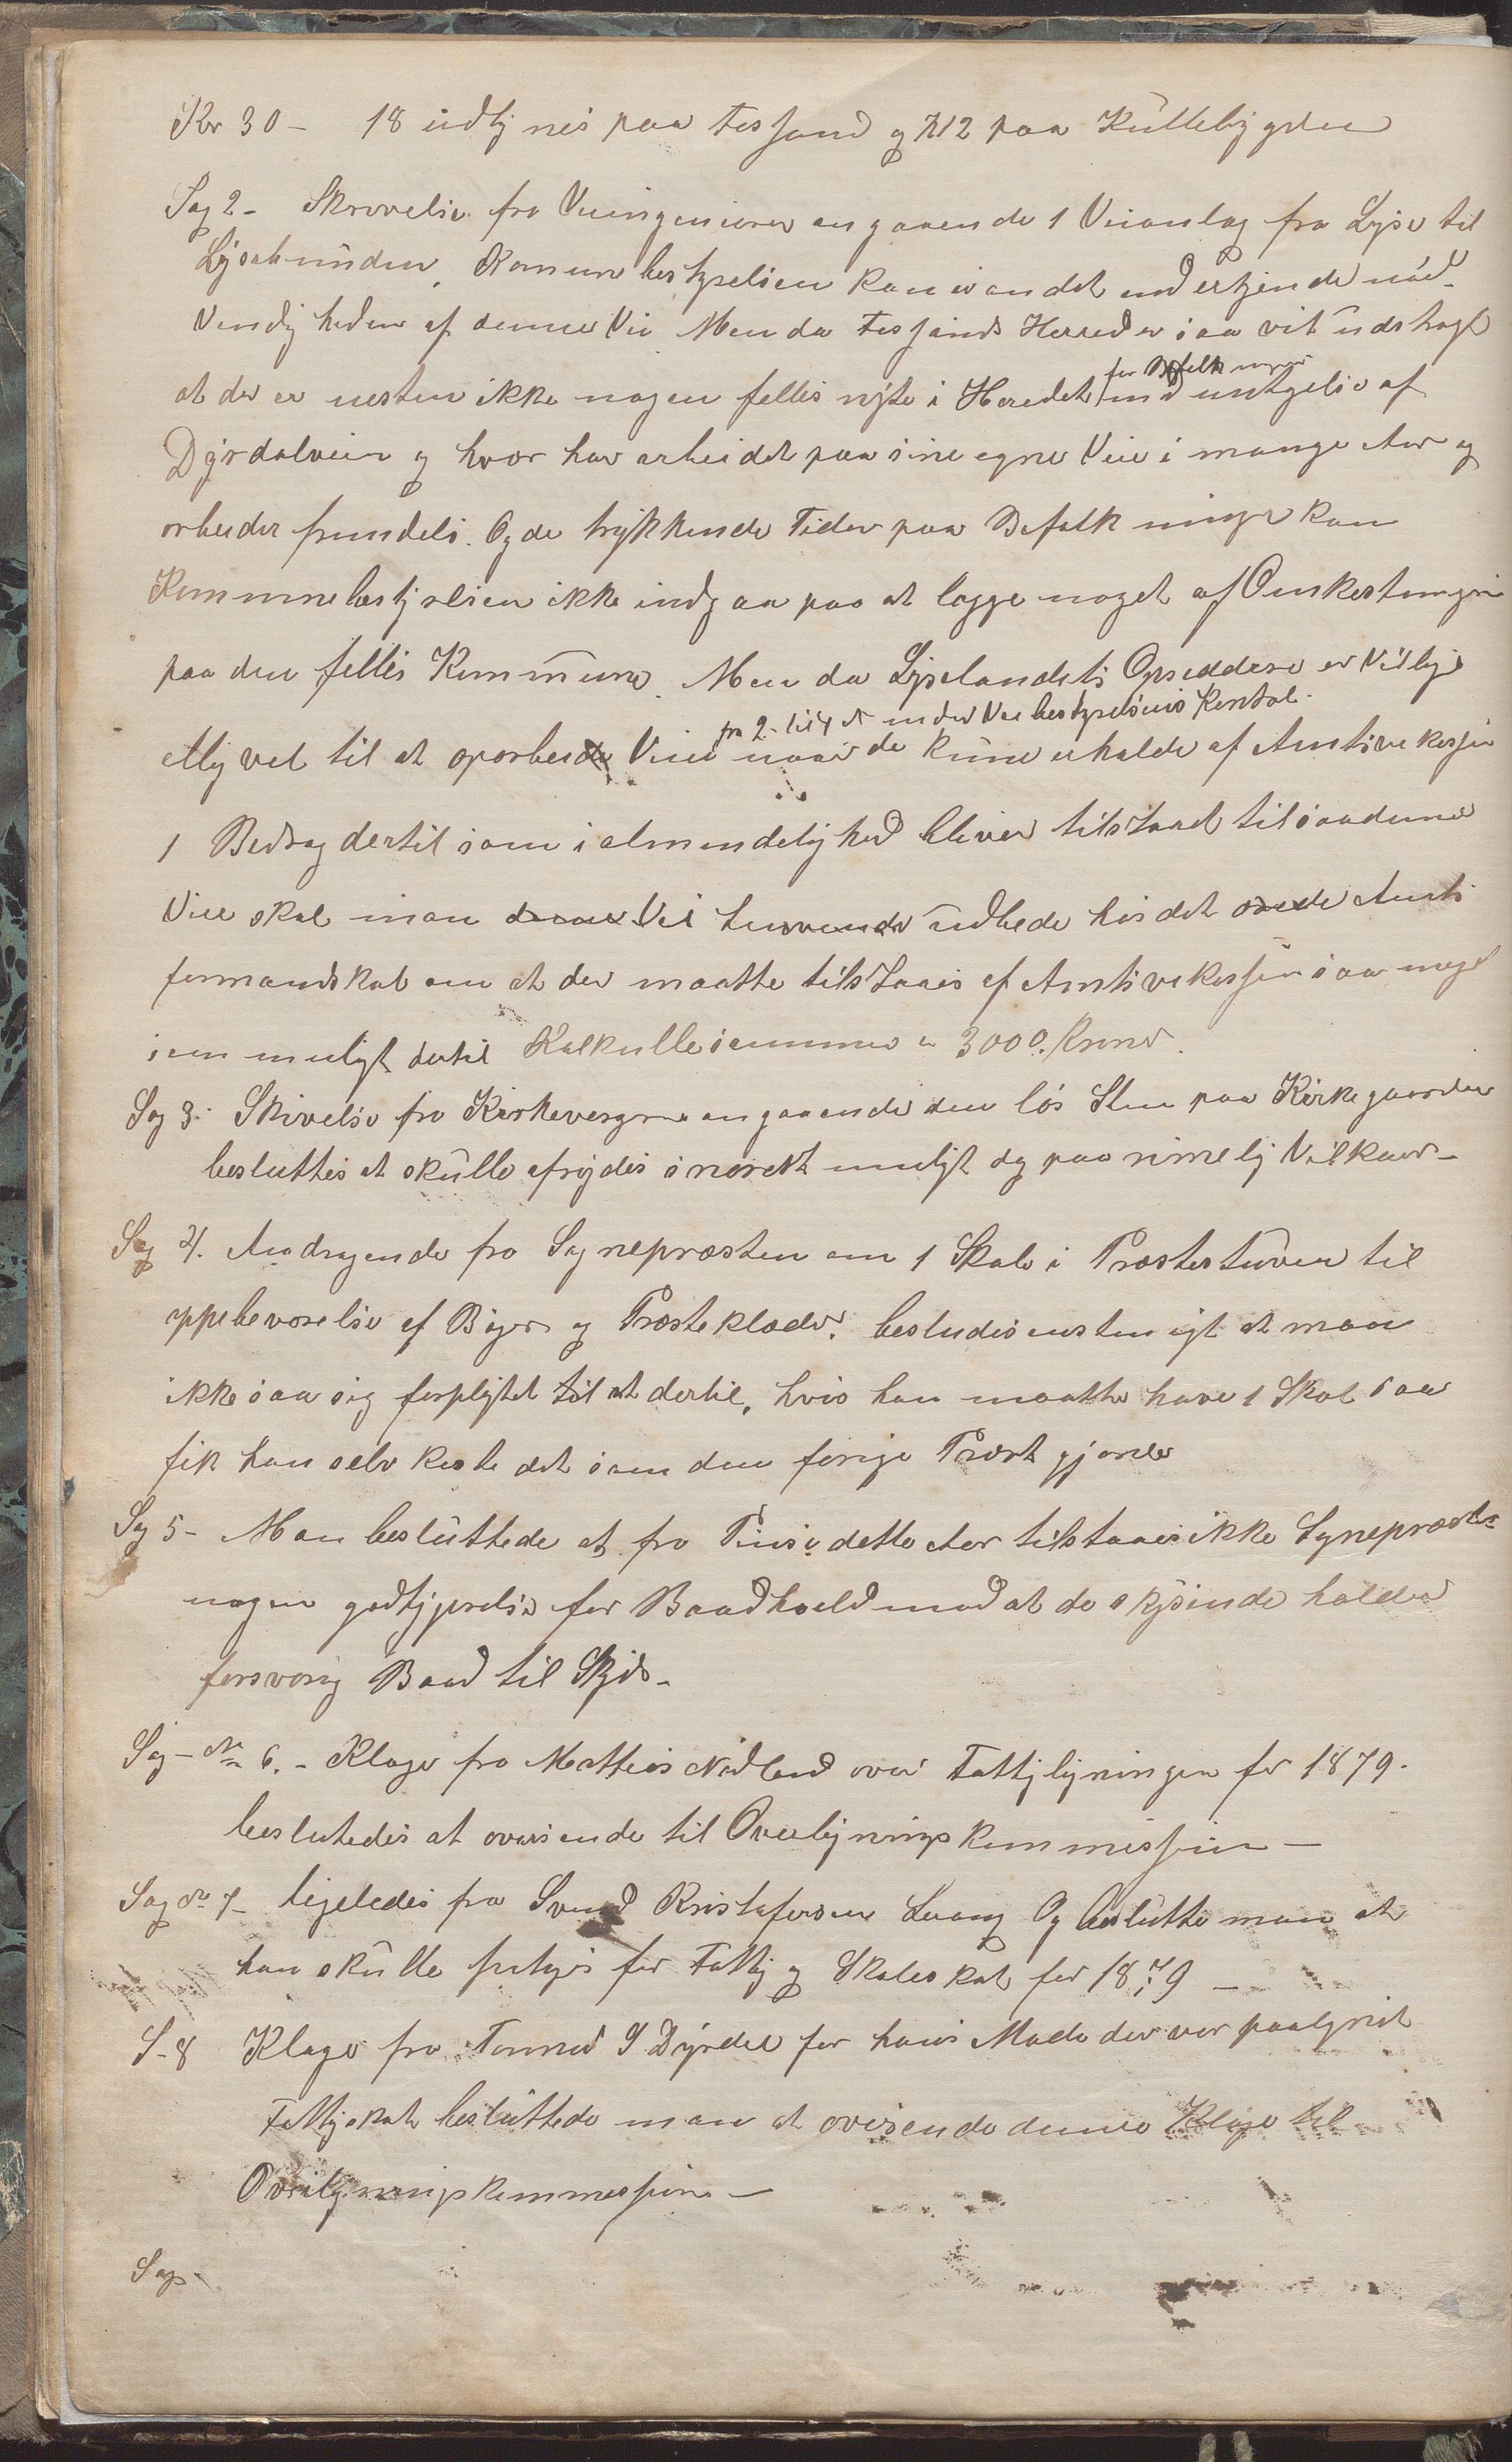 Kr 30 – 18 udlignes paa Fossand og K 12 paa Kullebygden
Sag 2 – Skrivelse fra Veiingeniøren angaaende 1 Veianlag fra Lyse til
Lysebunden, Komunebestyrelsen kan ei andet end erkjende nød-
vendigheden af denne Vei Men da Fossands Herred er saa vit udstragt
at der er nesten ikke nogen felles nyte i Heredet for Befolkningen med untagelse af
Dyrdalveien og hver har arbeidet paa sine egne Veie i mange Aar og
arbeider fremdeles. Og de trykkende Tider paa Befolkningen kan
Kommunebestyrelsen ikke indgaa paa at lagge noget af Omkostningerne
paa den felles Kommune. Men da Lyselandets Opsiddere er Villige
alligevel til at oparbeide Veien
fra 2 til 4 Al under Veibestyrelsens Kontrol.
naar de kunne erholde af Amtsvekassen
1 Bedrag dertil som i almindelighed bliver tilstaaet til saadanne
Veie skal man denne Vei udbede hos det Amts
formandskab om at der maatte tilstaaes af Amtsvekassen saa meget
som muligt dertil Kalkullesummen er 3000. Kroner.
Sag 3. Skrivelse fra Kirkevergerne angaaende den løs Sten paa Kirkegaarden
besluttes at skulle afrydes snarest muligt og paa rimelig Vilkaar –
Sag 4. Andragende fra Sognepræsten om 1 Skab i Præstestuven til
oppebevarelse af Bøger og Præsteklæder. besludes enstemigt at man
ikke saa sig forpligtet til at dertil, hvis han maatte have 1 Skab saa
fik han selv koste det som den forige Præst gjorde
Sag 5 – Man besluttede at fra Pinse dette Aar tilstaaes ikke Sognepræsten
nogen godtgjørelse for Baadhold mod at de skysende holder
forsvarig Baad til Skyds –
Sag – No 6. – Klage fra Matteis Nødland over Fattiglyningen for 1879.
beslutedes at oversende til Overligningskommissjonen –
Sag No 7 – ligeledes fra Svend Kristofersen Levang Og beslutte man at
han skulle fritages for Fattig og Skoleskat for 1879 –
S. 8 Klage fra Tønnes S Dyrdal for hans Moder der var paalignet
Fattigskat besluttede man at oversende denne Klage til
Overligningskommissjonen –
Sag –